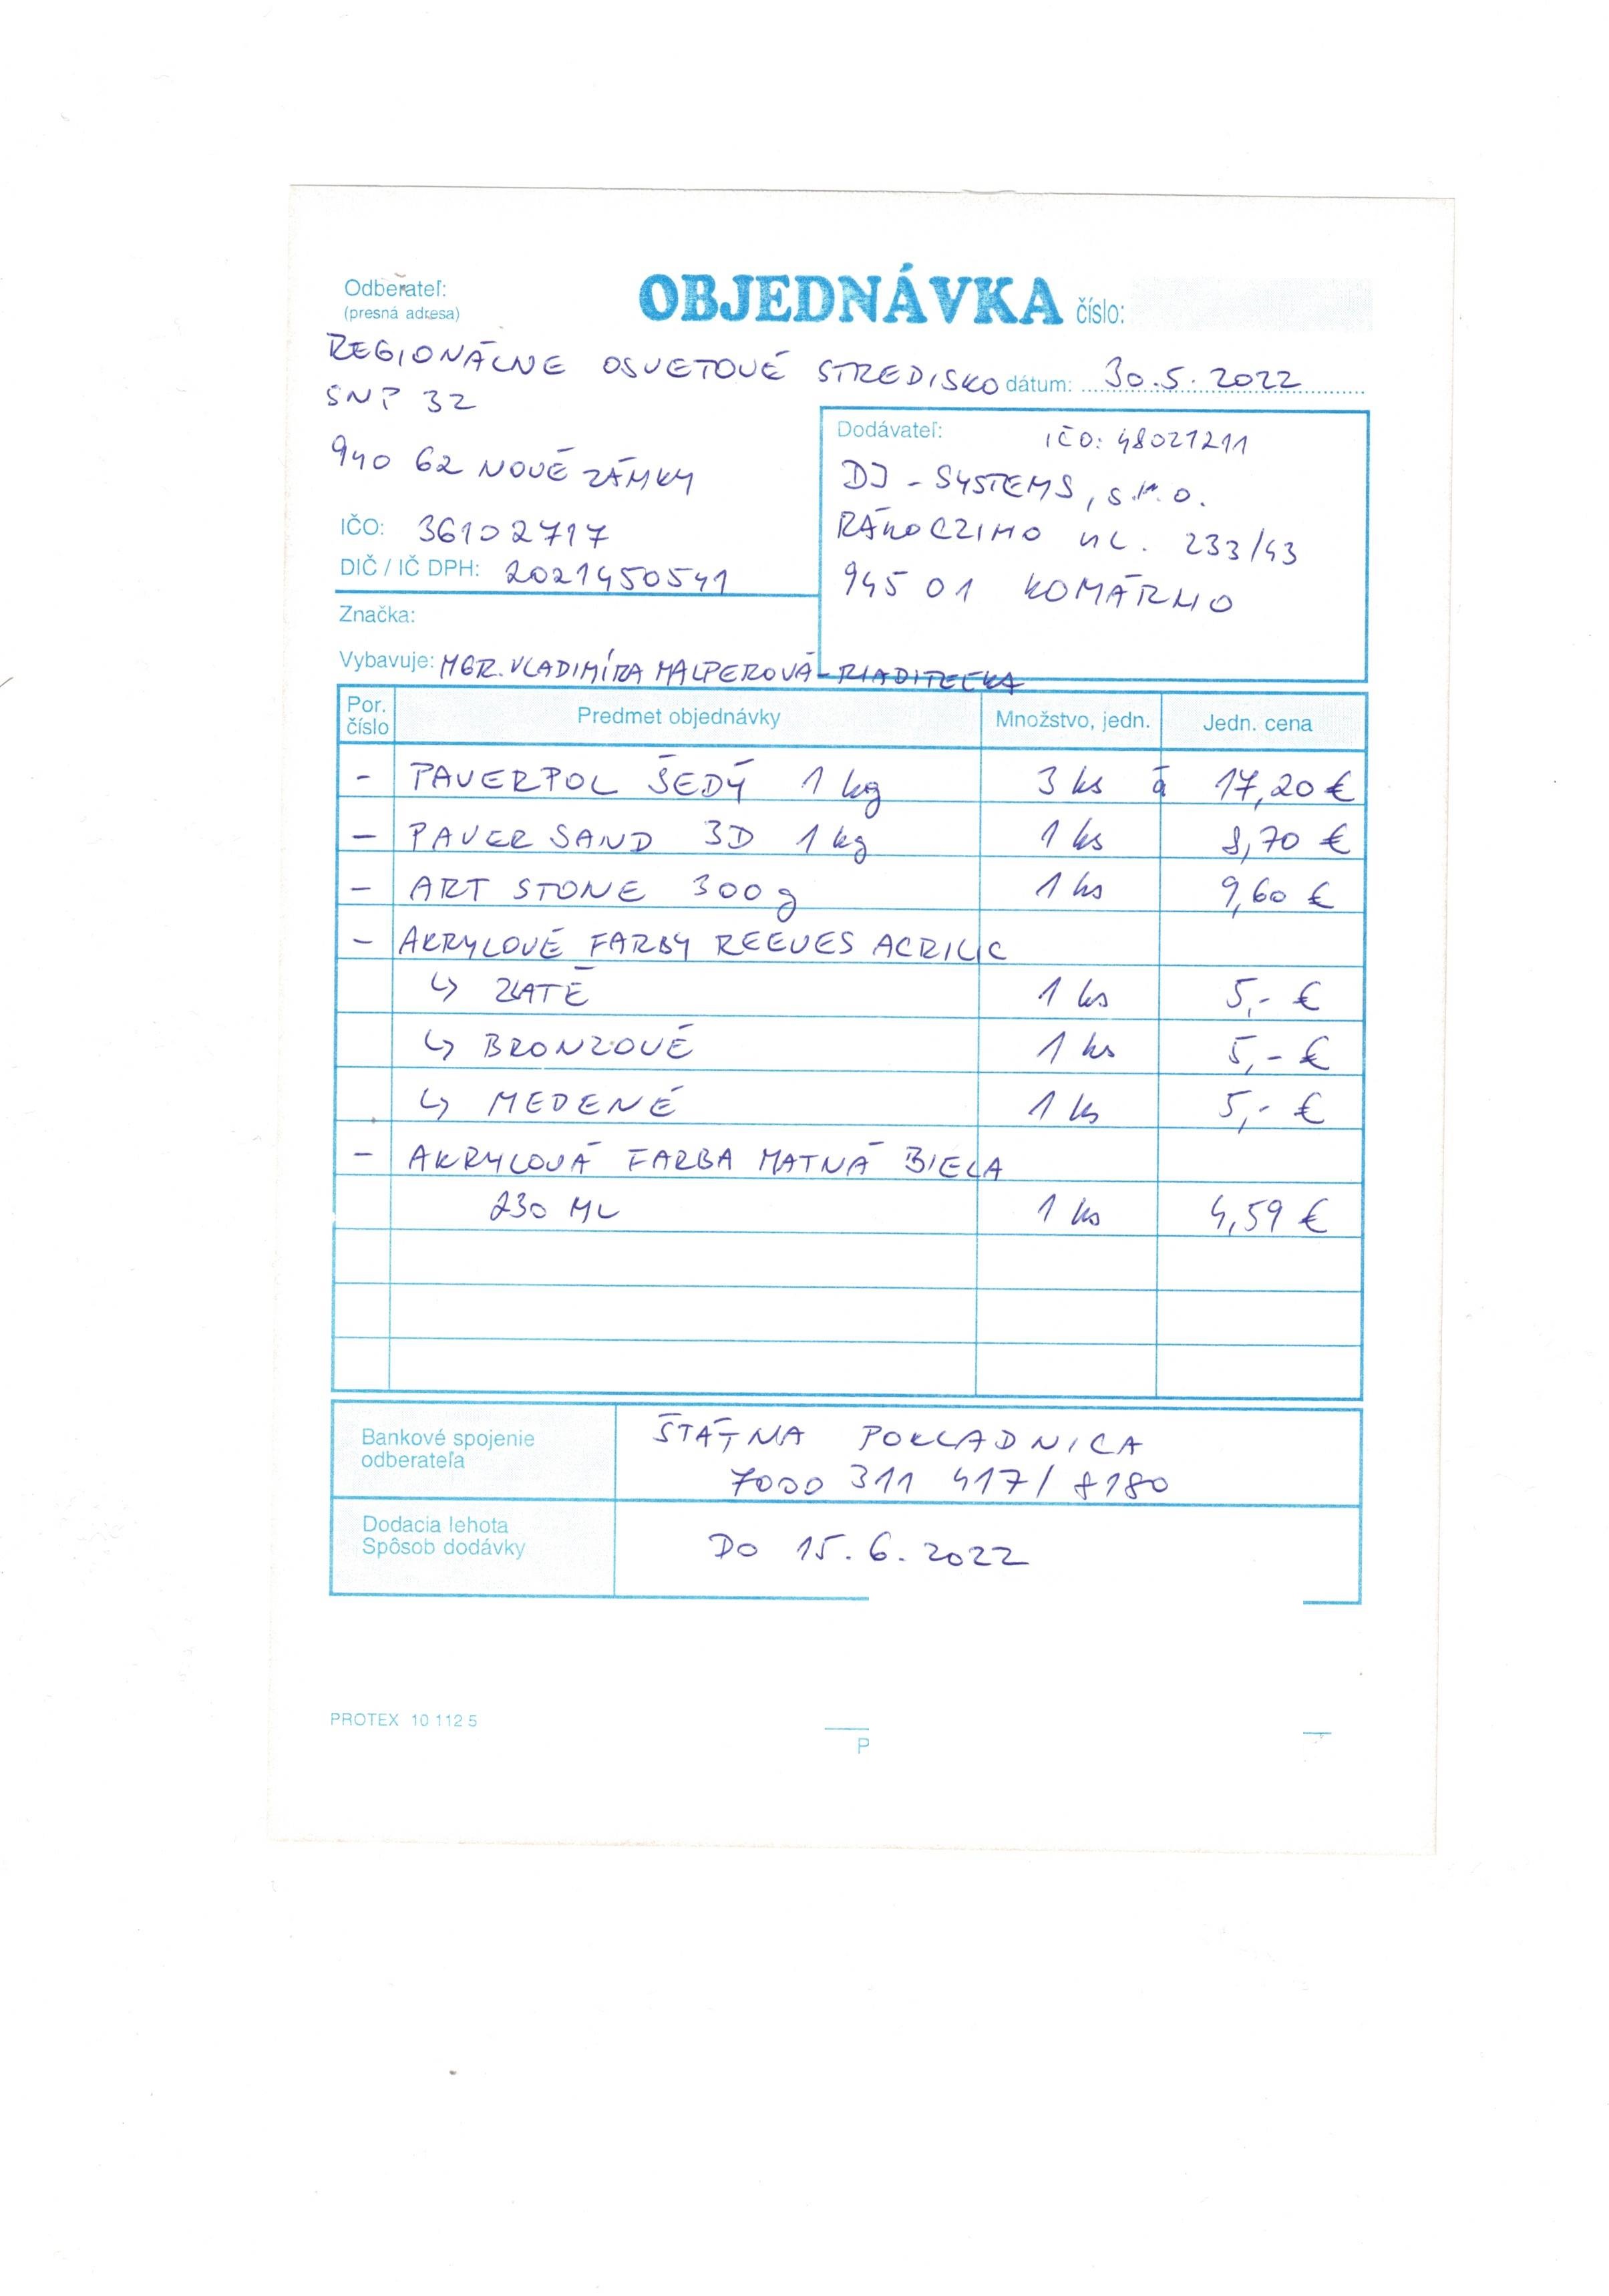 Odberateľ:
(presná adresa)
OBJEDNÁVKA číslo:
REGIONÁLNE OSVETOVÉ STREDISKO
dátum: 30.5.2022
SNP 32
940 62 NOVÉ ZÁMKY
IČO: 36102717
DIČ / IČ DPH: 2021450541
Dodávateľ: IČO: 48021211
DJ - SYSTEMS, s.r.o.
RÁKOCZIHO UL. 233/43
945 01 KOMÁRNO
Značka:
Vybavuje: MGR. VLADIMÍRA MALPEROVÁ - RIADITEĽKA
Por. číslo Predmet objednávky Množstvo, jedn. Jedn. cena
- PAVERPOL ŠEDÝ 1 kg 3 ks á 17,20 €
- PAVER SAND 3D 1 kg 1 ks 8,70 €
- ART STONE 300 g 1 ks 9,60 €
- AKRYLOVÉ FARBY REEVES ACRILIC
↳ ZLATÉ 1 ks 5,- €
↳ BRONZOVÉ 1 ks 5,- €
↳ MEDENÉ 1 ks 5,- €
- AKRYLOVÁ FARBA MATNÁ BIELA
230 ML 1 ks 4,59 €
Bankové spojenie
odberateľa
ŠTÁTNA POKLADNICA
7000 311 417 / 8180
Dodacia lehota
Spôsob dodávky
DO 15.6.2022
PROTEX 10 112 5
P